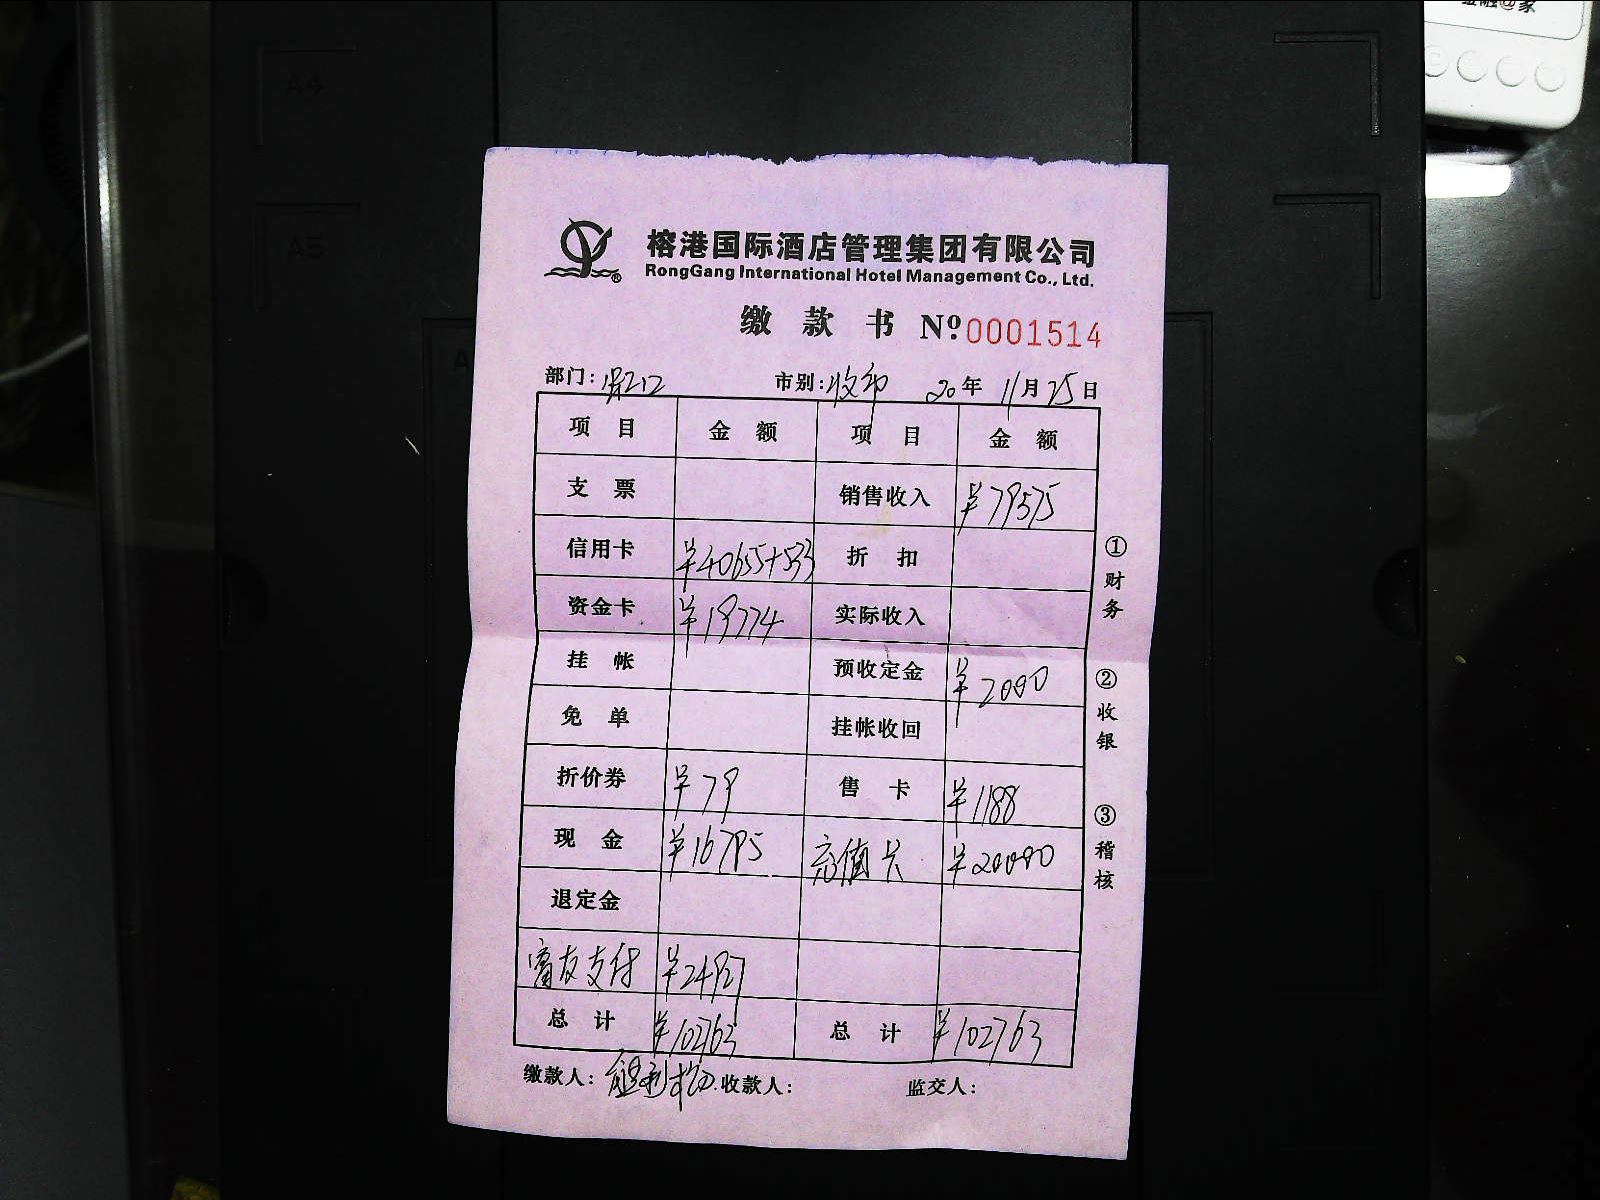 金融@家
A4
A5
榕港国际酒店管理集团有限公司
RongGang International Hotel Management Co., Ltd.
缴 款 书 Nº.0001514
部门: 市别:收市 20年 11月25日
项 目 金 额 项 目 金 额
支 票 销售收入 ¥79575
信用卡 ¥40655+533 折 扣
资金卡 ¥19774 实际收入
挂 帐 预收定金 ¥2000
免 单 挂帐收回
折价券 ¥79 售 卡 ¥1188
现 金 ¥16795 充值卡 ¥20000
退定金
富友支付 ¥24927
总 计 ¥102763 总 计 ¥102763
缴款人: 收款人: 监交人:
①财务
②收银
③稽核